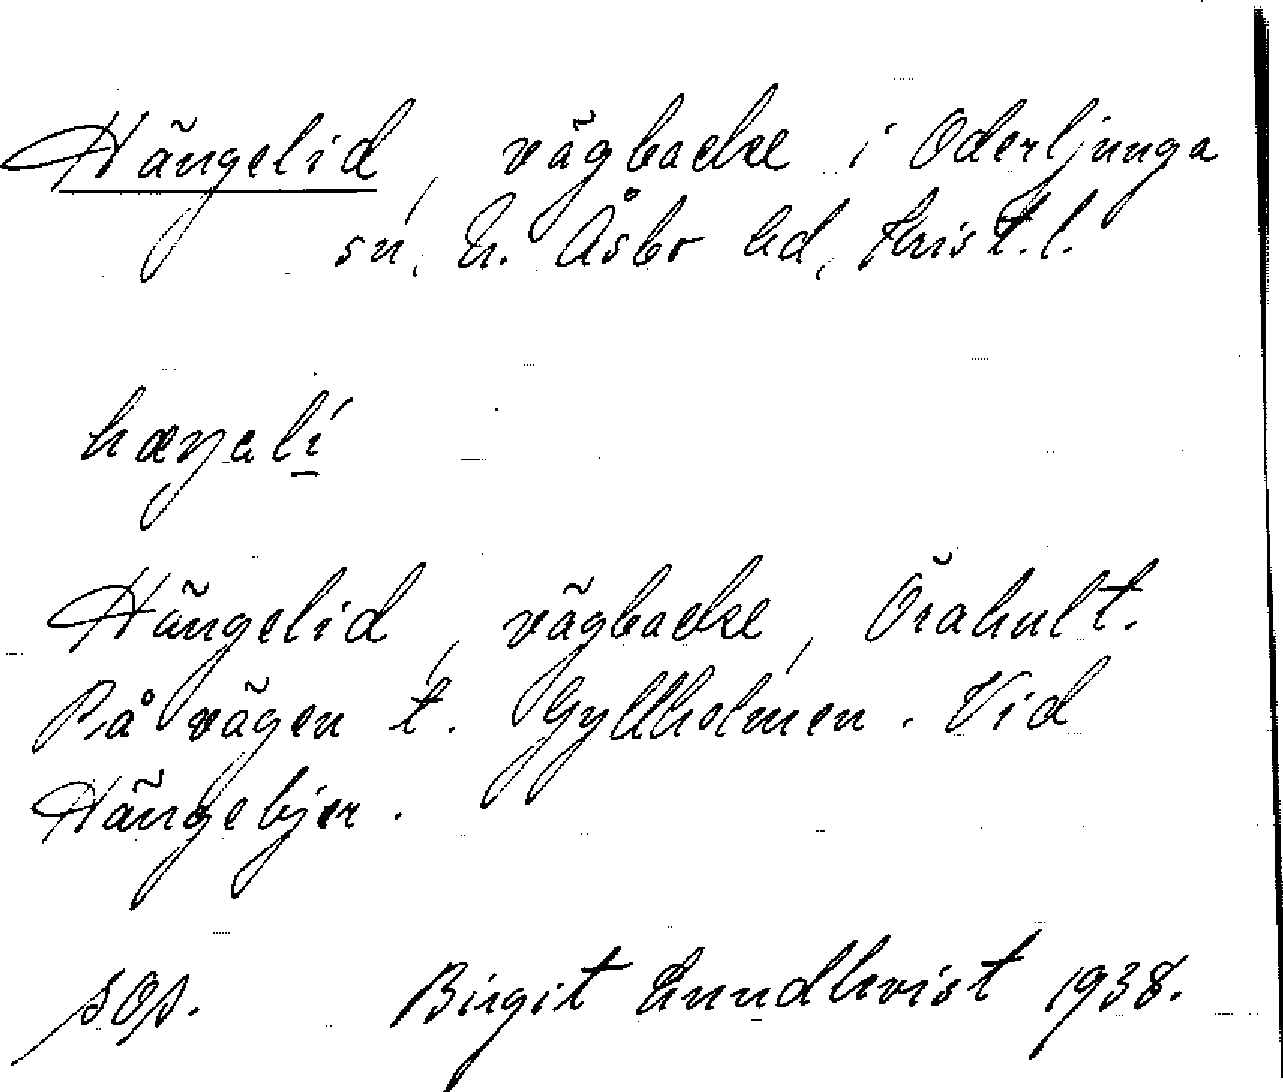 Hängelid, vägbacke i Oderljunga
sn, N. Åsbo hd, Krist. l.
hæŋəlí
Hängelid, vägbacke, Örahult.
På vägen t. Gyllholmen. Vid
Hängebjer.
Birgit Lundkvist 1938.